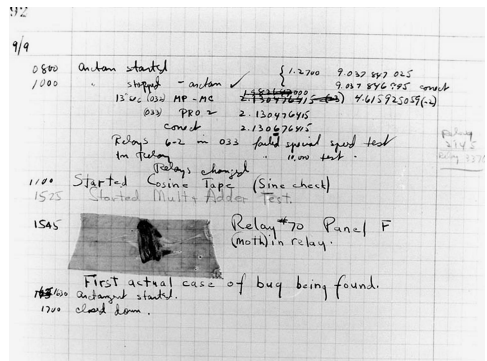 92
9/9
0800 Antan started
1000 " stopped - antan ✓ { 1.2700 9.037 847 025
9.037 846 995 correct
13"uc (032) MP - MC 2.130476415 (-3) 4.615925059(-2)
(033) PRO 2 2.130476415
correct 2.130676415
Relays 6-2 in 033 failed special speed test
In Relay " 10,000 test.
Relay
2145
Relay 3370
Relays changed
1100 Started Cosine Tape (Sine check)
1525 Started Mult+Adder Test.
1545 Relay #70 Panel F
(Moth) in relay.
First actual case of bug being found.
1630 Antangent started.
1700 closed down.